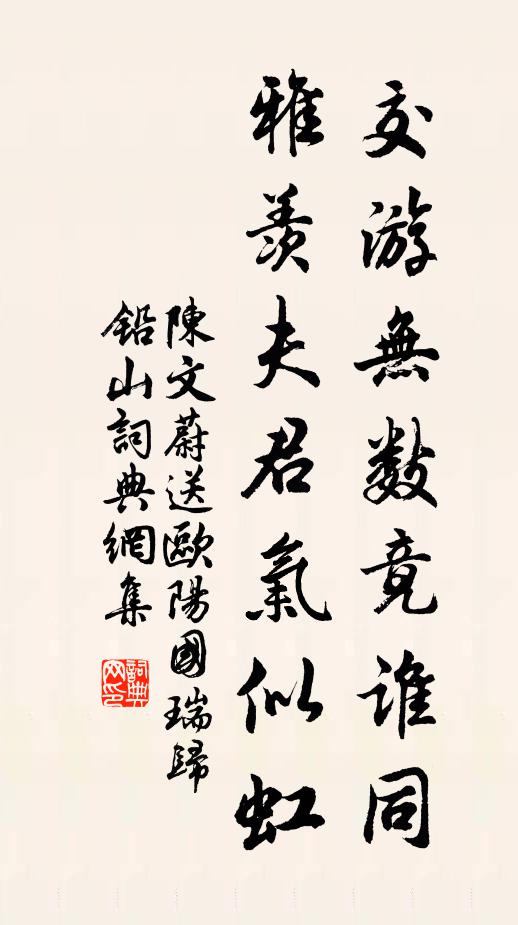 交游無數竟誰同
雅羨夫君氣似虹
陳文蔚送歐陽國瑞歸
鉛山詞典網集
詞典网印